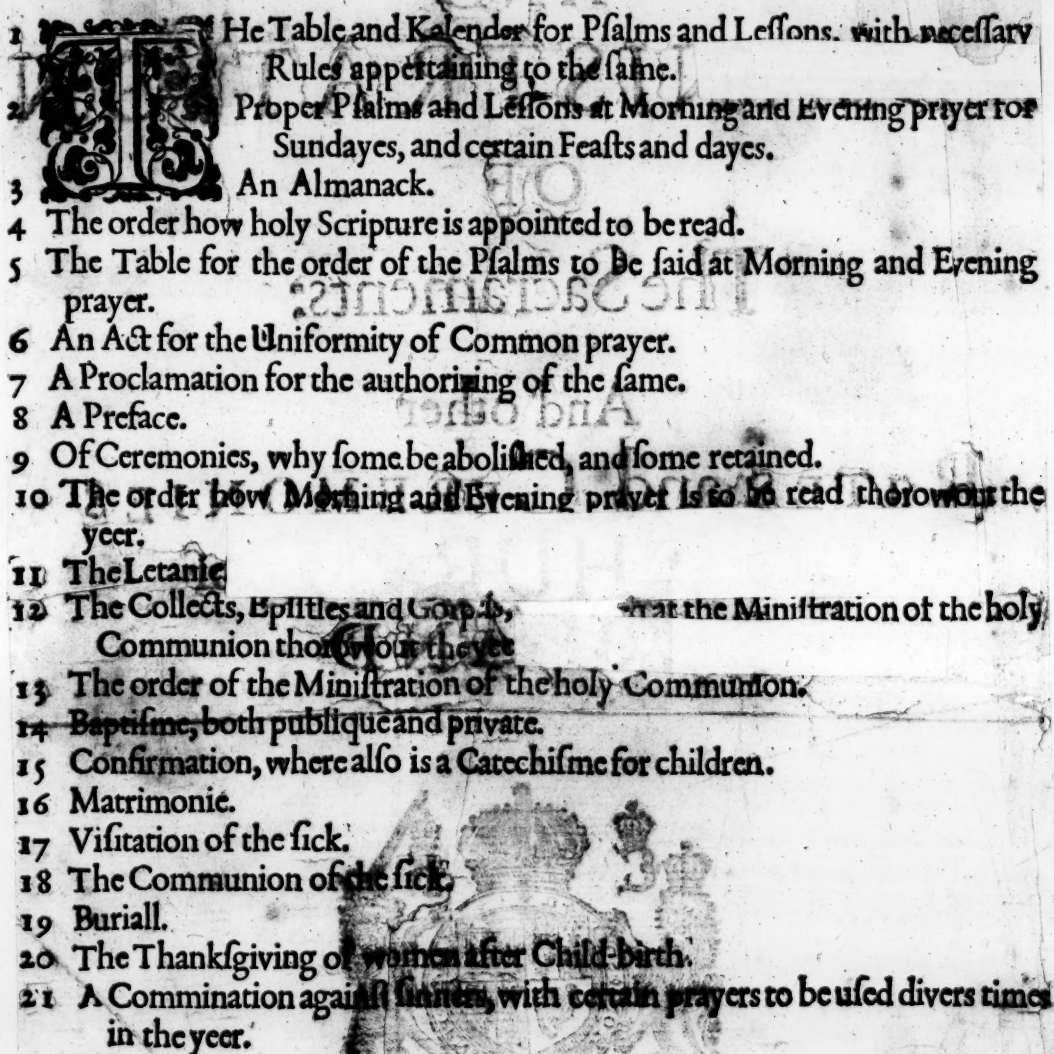 1 THe Table and Kalender for Pſalms and Leſſons. with neceſſary
Rules appertaining to the ſame.
2 Proper Pſalms and Leſſons at Morning and Evening prayer for
Sundayes, and certain Feaſts and dayes.
3 An Almanack.
4 The order how holy Scripture is appointed to be read.
5 The Table for the order of the Pſalms to be ſaid at Morning and Evening
prayer.
6 An Act for the Uniformity of Common prayer.
7 A Proclamation for the authorizing of the ſame.
8 A Preface.
9 Of Ceremonies, why ſome be aboliſhed, and ſome retained.
10 The order how Morning and Evening prayer is to be read thorowout the
yeer.
11 The Letanie
12 The Collects, Epiſtles and at the Miniſtration of the holy
Communion thorowout the
13 The order of the Miniſtration of the holy Communion.
14 Baptiſme, both publique and private.
15 Confirmation, where alſo is a Catechiſme for children.
16 Matrimonie.
17 Viſitation of the ſick.
18 The Communion of the ſick.
19 Buriall.
20 The Thankſgiving of women after Child-birth.
21 A Commination againſt ſinners, with certain prayers to be uſed divers times
in the yeer.